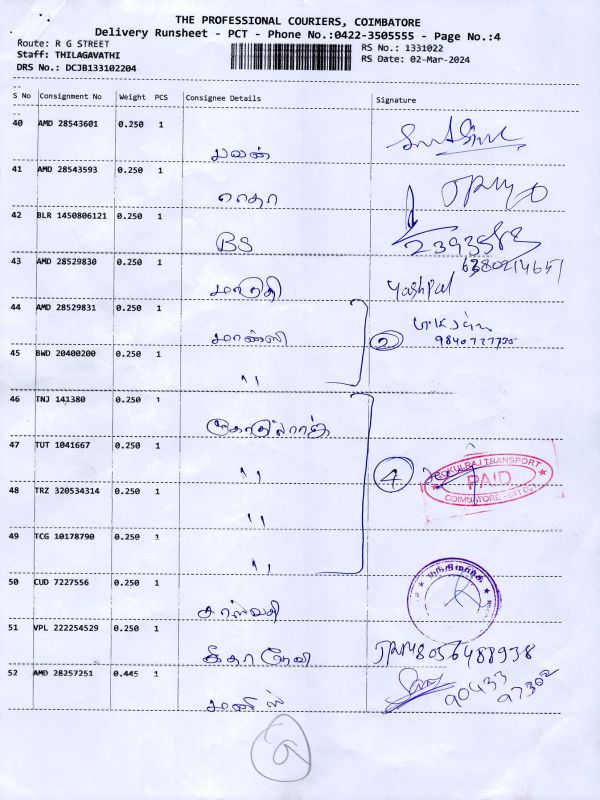 THE PROFESSIONAL COURIERS, COIMBATORE
Delivery Runsheet - PCT - Phone No.:0422-3505555 - Page No.:4
Route: R G STREET
RS No.: 1331022
Staff: THILAGAVATHI
RS Date: 02-Mar-2024
DRS No.: DCJB133102204
S No Consignment No Weight PCS Consignee Details Signature
40 AMD 28543601 0.250 1
பவன்
41 AMD 28543593 0.250 1
ராதா
42 BLR 1450806121 0.250 1
BS
43 AMD 28529830 0.250 1
மாருதி Yashpal
44 AMD 28529831 0.250 1
மான்ஸி 2 9840727725
45 BWD 20400200 0.250 1
"
46 TNJ 141380 0.250 1
கோகுல்ராஜ்
47 TUT 1041667 0.250 1
" 4 GOKULRAJ TRANSPORT
PAID
COIMBATORE
48 TRZ 320534314 0.250 1
"
49 TCG 10178790 0.250 1
"
50 CUD 7227556 0.250 1
51 VPL 222254529 0.250 1
கீதா தேவி 8056488938
52 AMD 28257251 0.445 1